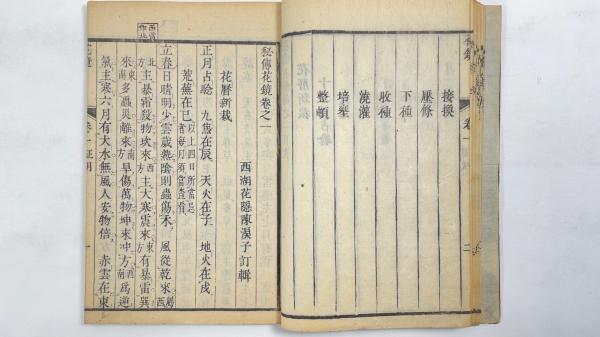 接換
壓條
下種
收種
澆灌
培壅
整頓
卷一
二
秘傳花鏡卷之一
西湖花隱陳淏子訂輯
花曆新栽
正月占驗 九焦在辰 天火在子 地火在戌
荒蕪在巳
立春日晴明少雲歲熟陰則蟲傷禾 風從乾來
主暴霜殺物坎來主大寒震來有暴雷巽
來多蟲災離來旱傷萬物坤來
氣主寒六月有大水無風人安物倍 赤雲在東
卷一 正月
一